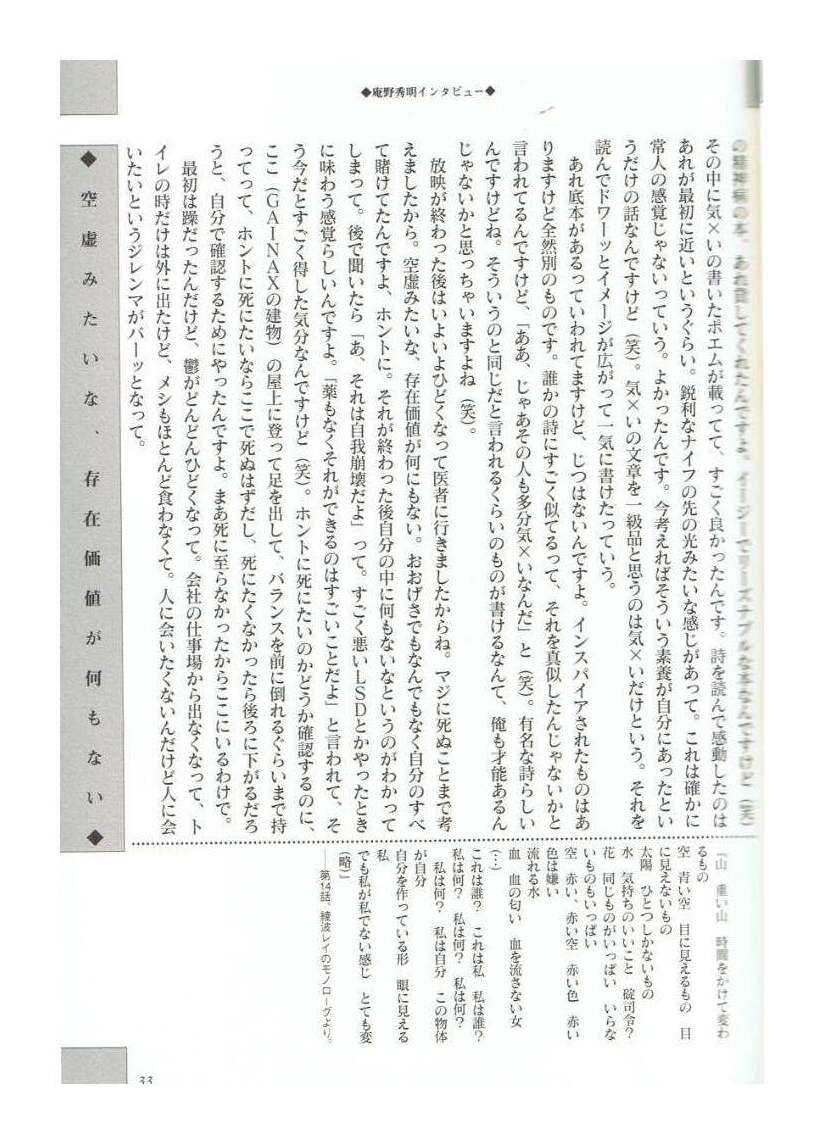 ◆庵野秀明インタビュー◆
の精神病の本、あれ貸してくれたんですよ。イージーでリーズナブルな本なんですけど（笑）
その中に気×いの書いたポエムが載ってて、すごく良かったんです。詩を読んで感動したのは
あれが最初に近いというぐらい。鋭利なナイフの先の光みたいな感じがあって。これは確かに
常人の感覚じゃないっていう。よかったんです。今考えればそういう素養が自分にあったとい
うだけの話なんですけど（笑）。気×いの文章を一級品と思うのは気×いだけという。それを
読んでドワーッとイメージが広がって一気に書けたっていう。
あれ底本があるっていわれてますけど、じつはないんですよ。インスパイアされたものはあ
りますけど全然別のものです。誰かの詩にすごく似てるって、それを真似したんじゃないかと
言われてるんですけど、「ああ、じゃあその人も多分気×いなんだ」と（笑）。有名な詩らしい
んですけどね。そういうのと同じだと言われるくらいのものが書けるなんて、俺も才能あるん
じゃないかと思っちゃいますよね（笑）。
放映が終わった後はいよいよひどくなって医者に行きましたからね。マジに死ぬことまで考
えましたから。空虚みたいな、存在価値が何にもない。おおげさでもなんでもなく自分のすべ
て賭けてたんですよ、ホントに。それが終わった後自分の中に何もないなというのがわかって
しまって。後で聞いたら「あ、それは自我崩壊だよ」って。すごく悪いLSDとかやったとき
に味わう感覚らしいんですよ。「薬もなくそれができるのはすごいことだよ」と言われて、そ
う今だとすごく得した気分なんですけど（笑）。ホントに死にたいのかどうか確認するのに、
ここ（GAINAXの建物）の屋上に登って足を出して、バランスを前に倒れるぐらいまで持
ってって、ホントに死にたいならここで死ぬはずだし、死にたくなかったら後ろに下がるだろ
うと、自分で確認するためにやったんですよ。まあ死に至らなかったからここにいるわけで。
最初は躁だったんだけど、鬱がどんどんひどくなって。会社の仕事場から出なくなって、ト
イレの時だけは外に出たけど、メシもほとんど食わなくて。人に会いたくないんだけど人に会
いたいというジレンマがバーッとなって。
◆空虚みたいな、存在価値が何もない◆
『山　重い山　時間をかけて変わ
るもの
空　青い空　目に見えるもの　目
に見えないもの
太陽　ひとつしかないもの
水　気持ちのいいこと　碇司令？
花　同じものがいっぱい　いらな
いものもいっぱい
空　赤い、赤い空　赤い色　赤い
色は嫌い
流れる水
血　血の匂い　血を流さない女
（…）
これは誰？　これは私　私は誰？
私は何？　私は何？　私は何？
私は何？　私は自分　この物体
が自分
自分を作っている形　眼に見える
私
でも私が私でない感じ　とても変
（略）』
――第14話、綾波レイのモノローグより。
33